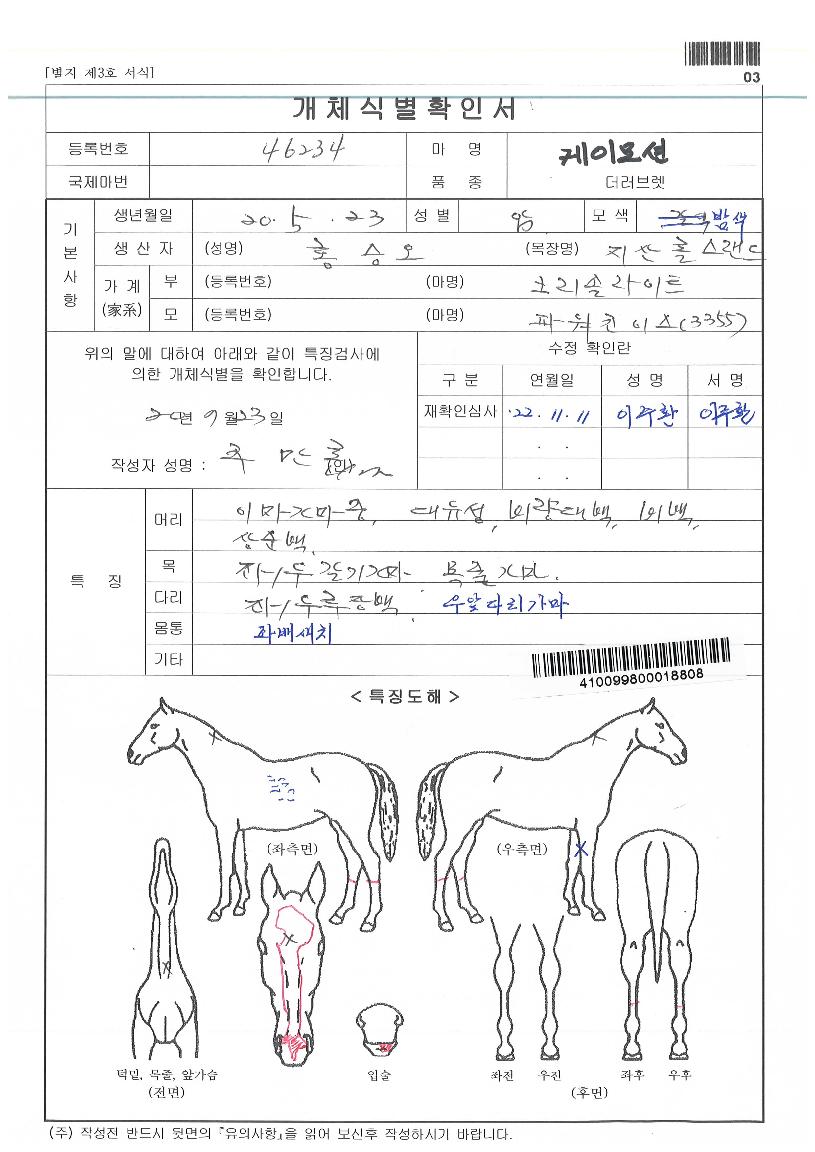 [별지 제3호 서식]
03
개체식별확인서
등록번호 46234 마 명 케이모션
국제마번 품 종 더러브렛
기본사항
생년월일 20. 5. 23 성별 암 모색 밤색
생산자 (성명) 홍승오 (목장명) 지산홀스랜드
가계 (家系) 부 (등록번호) (마명) 코리솔라이트
모 (등록번호) (마명) 파워 이스(3355)
위의 말에 대하여 아래와 같이 특징검사에
의한 개체식별을 확인합니다.
20년 9월 23일
작성자 성명 : (인)
수정 확인란
구 분 연월일 성 명 서 명
재확인심사 '22. 11. 11 이주환 이주환
. .
. .
특 징
머리 이마가마중, 대유성, 비량대백, 비백,
상순백
목 좌/우갈기가마 목줄가마.
다리 좌/우후장백, 우앞다리가마
몸통 좌배새치
기타
410099800018808
< 특징도해 >
(좌측면) (우측면)
턱밑, 목줄, 앞가슴
(전면)
입술
좌전 우전
좌후 우후
(후면)
(주) 작성전 반드시 뒷면의 『유의사항』을 읽어 보신후 작성하시기 바랍니다.